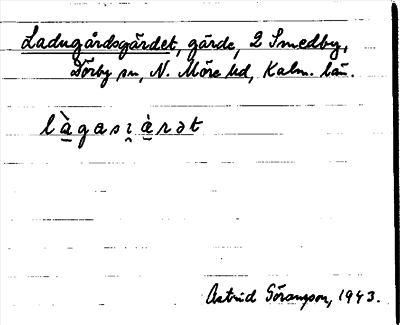 Ladugårdsgärdet, gärde, 2 Smedby,
Dörby sn, N. Möre hd, Kalm. län.
là̠gasɪ̯à̠rət
Astrid Göransson, 1943.